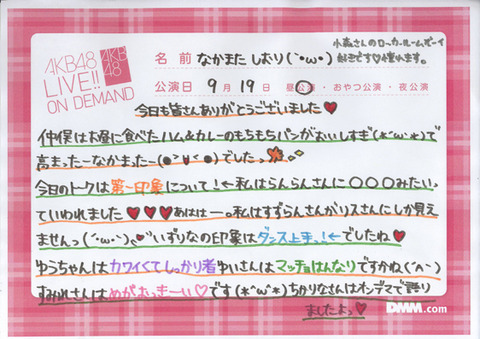 AKB48
LIVE!!
ON DEMAND
AKB
48
小森さんのロッカールームボーイ
好きです♡憧れます。
名前 なかまた しおり(`・ω・)
公演日 9月19日 昼公演・おやつ公演・夜公演
今日も皆さんありがとうございました♥
仲俣はお昼に食べたハム&カレーのもちもちパンがおいしすぎ(*´ω`*)で
高まったーなかまったー(●°∀°●)でしたっ
今日のトークは第一印象について!←私はらんらんさんに〇〇〇みたいっ
ていわれました♥♥♥あははー。私はすずらんさんがリスさんにしか見え
ませんっ(´・ω・`)いずりなの印象はダンス上手っ!←でしたね♥
ゆうちゃんはカワイくてしっかり者ゆいさんはマッチョはんなりですかね(´^`)
すみれさんはめがおっきーい♡です(*´ω`*)ちかりなさんはオンデマで語り
ましたよっ♡
DMM.com